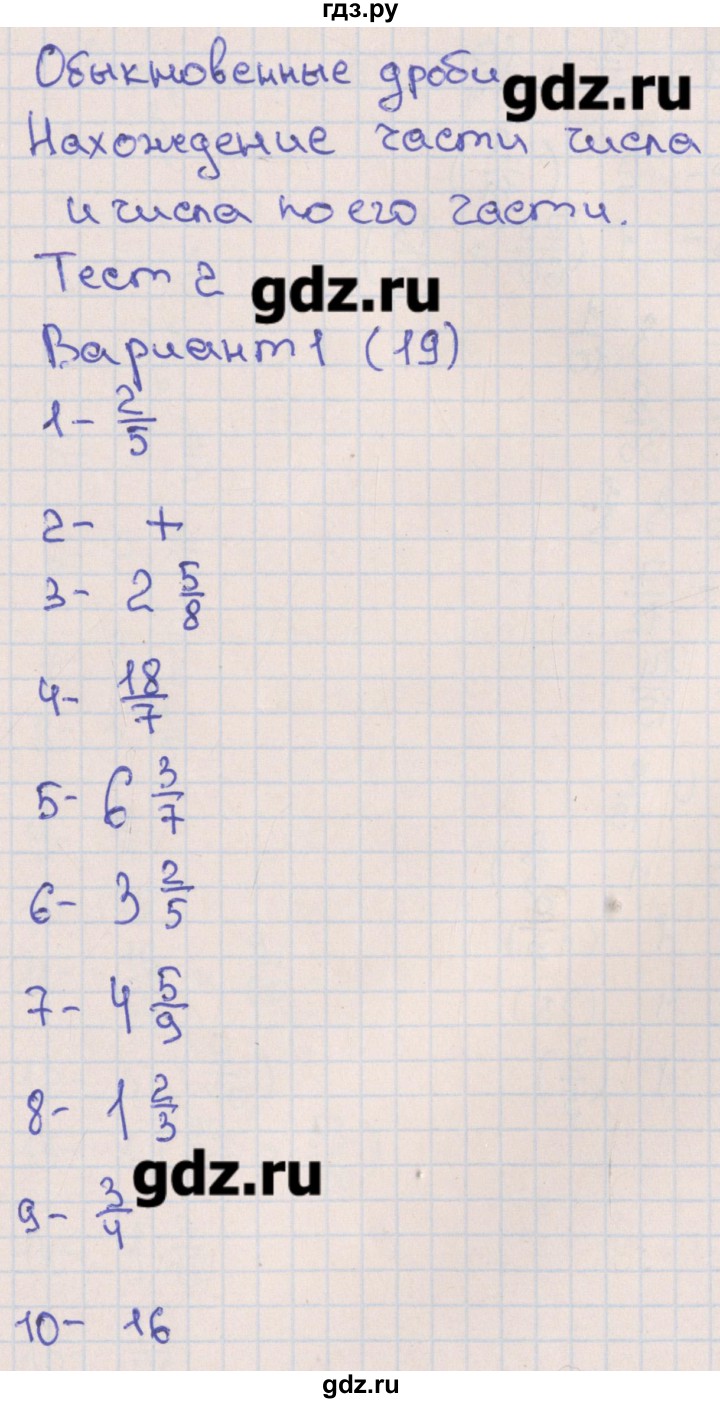 гдз.ру
Обыкновенные дроби
gdz.ru
Нахождение части числа
и числа по его части.
Тест 2
gdz.ru
Вариант 1 (19)
1- 2/5
2- +
3- 2 5/8
4- 18/7
5- 6 3/7
6- 3 2/5
7- 4 5/9
8- 1 2/3
gdz.ru
9- 3/4
10- 16
gdz.ru